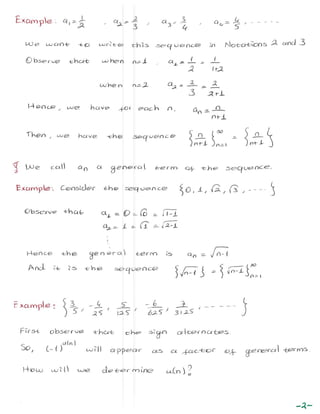 Example: a₁ = 1/2 , a₂ = 2/3 , a₃ = 3/4 , a₄ = 4/5 , - - - - -
We want to write this sequence in Notations 2 and 3
Observe that when n=1 , a₁ = 1/2 = 1/(1+1)
when n=2 a₂ = 2/3 = 2/(2+1)
Hence, we have for each n, aₙ = n/(n+1)
Then, we have the sequence {n/(n+1)}_{n=1}^∞ = {n/(n+1)}
We call aₙ a general term of the sequence.
Example: Consider the sequence {0, 1, √2, √3, - - - - }
Observe that a₁ = 0 = √0 = √(1-1)
a₂ = 1 = √1 = √(2-1)
Hence the general term is aₙ = √(n-1)
And it is the sequence {√(n-1)} = {√(n-1)}_{n=1}^∞
Example: {3/5, -4/25, 5/125, -6/625, 7/3125, - - - - - }
First observe that the sign alternates.
So, (-1)^{u(n)} will appear as a factor of general terms.
How will we determine u(n)?
-2-